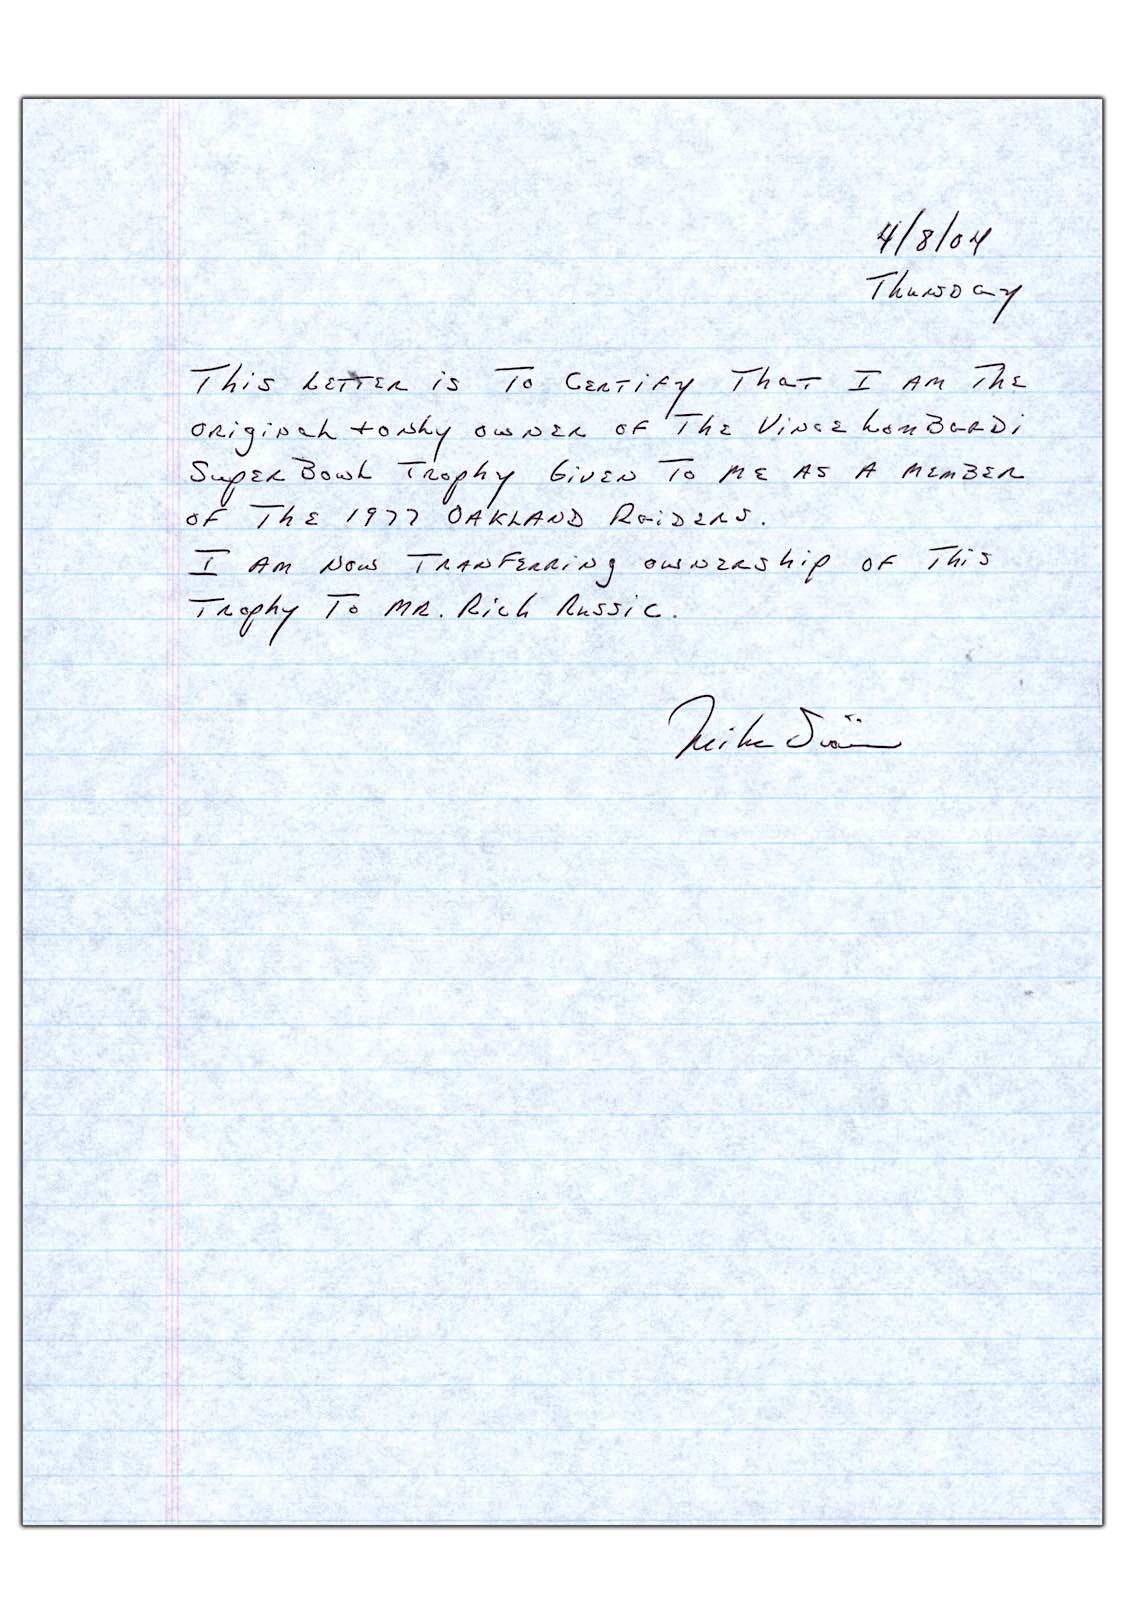 4/8/04
Thursday
This Letter is To Certify That I am The
original + only owner of The Vince Lombardi
Super Bowl Trophy Given To me as a member
of The 1977 Oakland Raiders.
I am now Tranferring ownership of This
Trophy To Mr. Rich Russic.
Mike